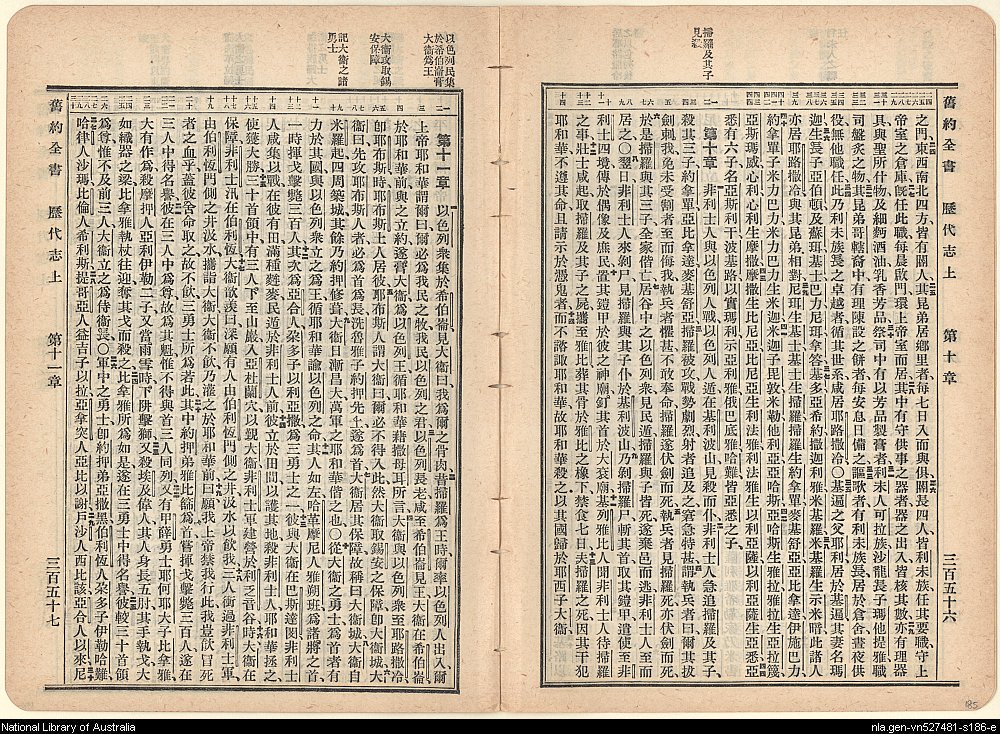 舊約全書 歷代志上 第十章 三百五十六
之門東西南北四方皆有閽人其昆弟居鄉里者每七日入而與俱閽長四人皆利未族任其要職守上
帝室之倉庫旣任此職每晨啟門環上帝室而居其中有守供事之器者器之出入皆核其數亦有理器
具與聖所什物及細麫酒油乳香芳品祭司中有以芳品製膏者利未人可拉族沙龍長子瑪他提雅職
司盤炙之物其昆弟哥轄裔中有理陳設之餅者每安息日備之謳歌者有利未族長居於會舍晝夜供
役無他職任此乃利未族長之卓越者循其世系咸居耶路撒冷〇基遍之父耶利居於基遍其妻名瑪
迦生長子亞伯頓及蘇珥基士巴力尼珥拿答基多亞希約撒迦利亞米基羅米基羅生示米暗此諸人
亦居耶路撒冷與其昆弟相對尼珥生基士基士生掃羅掃羅生約拿單麥基舒亞亞比拿達伊施巴力
約拿單子米力巴力米力巴力生米迦米迦子毘敦米勒他利亞亞哈斯亞哈斯生雅拉雅拉生亞拉篾
亞斯瑪威心利心利生摩撒摩撒生比尼亞比尼亞生利法雅利法雅生以利亞薩以利亞薩生亞悉亞
悉有六子名亞斯利干波基路以實瑪利示亞利雅俄巴底雅哈難皆亞悉之子
第十章 非利士人與以色列人戰以色列人遁在基利波山見殺而仆非利士人急追掃羅及其子
殺其三子約拿單亞比拿達麥基舒亞掃羅被攻戰勢劇烈射者追及之窘急特甚謂執兵者曰爾其拔
劍刺我免未受割者至而侮我執兵者懼甚不敢奉命掃羅遂伏劍而死執兵者見掃羅死亦伏劍而死
於是掃羅與其三子全家偕亡居谷中之以色列衆見民遁掃羅與子皆死遂棄邑而逃非利士人至而
居之〇翌日非利士人來剝尸見掃羅與其子仆於基利波山乃剝掃羅尸斬其首取其鎧甲遣使至非
利士四境傳於偶像及庶民置其鎧甲於彼之神廟釘其首於大衮廟基列雅比人聞非利士人待掃羅
之事壯士咸起取掃羅及其子之屍攜至雅比葬其骨於雅比之橡下禁食七日夫掃羅之死因其干犯
耶和華不遵其命且請示於憑鬼者而不諮諏耶和華故耶和華殺之以其國歸於耶西子大衞
掃羅及其子
見殺
以色列民集
於希伯崙膏
大衞爲王
大衞攻取錫
安保障
記大衞之諸
勇士
第十一章 以色列人衆集於希伯崙見大衞曰我爲爾之骨肉昔掃羅爲王時爾率以色列人出入爾
上帝耶和華謂爾曰爾必爲我民之牧我民以色列之君以色列長老咸至希伯崙見王大衞在希伯崙
於耶和華前與之立約遂膏大衞爲以色列王循耶和華藉撒母耳所言大衞與以色列衆至耶路撒冷
卽耶布斯時耶布斯土人居彼耶布斯人謂大衞曰爾必不得入此然大衞取錫安之保障卽大衞城大
衞曰先攻耶布斯人者必爲首爲長洗魯雅子約押先上遂爲首大衞居其保障故稱曰大衞城大衞自
米羅起四周築城其餘乃約押修葺大衞日漸昌大萬軍之耶和華偕之也〇從大衞之勇士爲其首者有
力於其國與以色列衆立之爲王循耶和華諭以色列之命其人如左哈革摩尼人雅朔班爲諸將之首
一時揮戈擊斃三百人其次爲亞合人朶多子以利亞撒爲三勇士之一彼與大衞在巴斯達閔非利士
人咸集以戰在彼有田滿種麰麥民遁於非利士人前彼立於田間以護其地殺非利士人耶和華拯之
使獲大勝三十首領中有三人下至山巖入亞杜蘭穴以覲大衞非利士軍建營於利乏音谷時大衞在
保障非利士汛在伯利恆大衞歆羨曰深願有人由伯利恆門側之井汲水以飲我三人衝過非利士軍
由伯利恆門側之井汲水攜詣大衞大衞不飲乃灌之於耶和華前曰願我上帝禁我行此我豈飲冒死
者之血乎蓋彼舍命取之故不飲三勇士所爲若此其中約押弟亞比篩爲首嘗揮戈擊斃三百人遂在
三人中得名譽彼在三人中爲尊故爲其魁惟不得與首三人同列又有甲薛勇士耶何耶大子比拿雅
大有作爲殺摩押人亞利伊勒二子又當雨雪時下阱擊獅又殺埃及偉人其人身長五肘其手執戈大
如織器之梁比拿雅執杖往迎奪其戈而殺之比拿雅所爲如是遂在三勇士中得名譽彼較三十首領
爲尊惟不及前三人大衞立之爲侍衞長〇軍中之勇士卽約押弟亞撒黑伯利恆人朶多子伊勒哈難
哈律人沙瑪比倫人希利斯提哥亞人益吉子以拉亞拿突人亞比以謝戶沙人西比該亞合人以來尼
舊約全書 歷代志上 第十一章 三百五十七
185
National Library of Australia
nla.gen-vn527481-s186-e